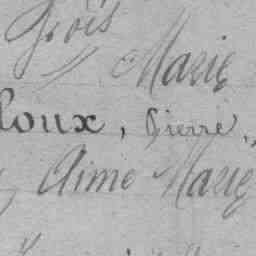 Grois
" Marie
loux, Pierre,
Aimé Marie